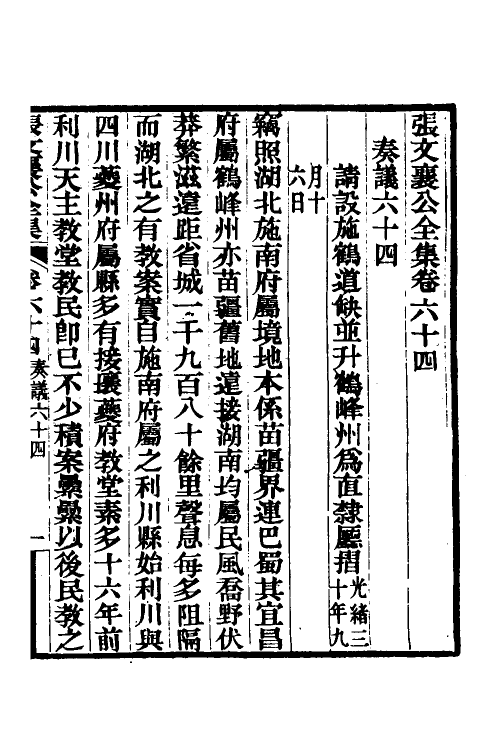 張文襄公全集卷六十四
奏議六十四
請設施鶴道缺並升鶴峰州爲直隸廳摺光緒三十年九
月十六日
竊照湖北施南府屬境地本係苗疆界連巴蜀其宜昌
府屬鶴峰州亦苗疆舊地遠接湖南均屬民風喬野伏
莽繁滋遠距省城一千九百八十餘里聲息每多阻隔
而湖北之有教案實自施南府屬之利川縣始利川與
四川夔州府屬縣多有接壤夔府教堂素多十六年前
利川天主教堂教民卽已不少積案纍纍以後民教之
張文襄公全集 卷六十四 奏議六十四 一